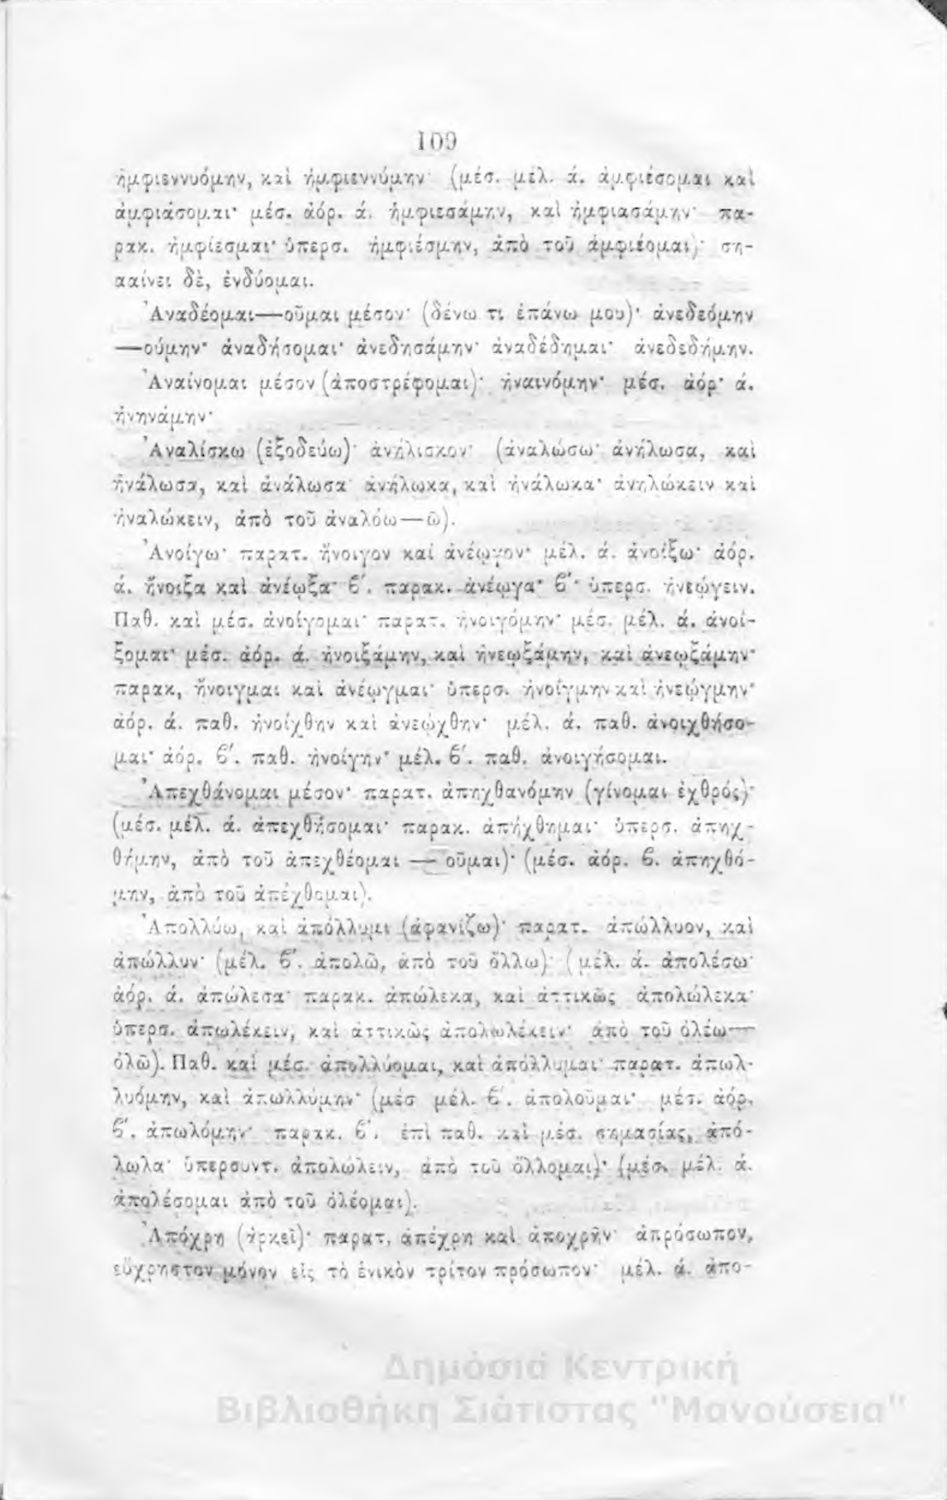 109
ἠμφιεννυόμην, καὶ ἠμφιεννύμην· (μέσ. μέλ. ά. ἀμφιέσομαι καὶ
ἀμφιάσομαι· μέσ. ἀόρ. ά. ἠμφιεσάμην, καὶ ἠμφιασάμην· πα-
ρακ. ἠμφίεσμαι· ὑπερσ. ἠμφιέσμην, ἀπὸ τοῦ ἀμφιέομαι)· ση-
ααίνει δὲ, ἐνδύομαι.
Ἀναδέομαι—οῦμαι μέσον· (δένω τι ἐπάνω μου)· ἀνεδεόμην
—ούμην· ἀναδήσομαι· ἀνεδησάμην· ἀναδέδημαι· ἀνεδεδήμην.
Ἀναίνομαι μέσον (ἀποστρέφομαι)· ἠναινόμην· μέσ. ἀόρ· ά.
ἠνηνάμην·
Ἀναλίσκω (ἐξοδεύω)· ἀνήλισκον· (ἀναλώσω· ἀνήλωσα, καὶ
ἠνάλωσα, καὶ ἀνάλωσα· ἀνήλωκα, καὶ ἠνάλωκα· ἀνηλώκειν καὶ
ἠναλώκειν, ἀπὸ τοῦ ἀναλόω—ῶ).
Ἀνοίγω· παρατ. ἤνοιγον καὶ ἀνέῳγον· μέλ. ά. ἀνοίξω· ἀόρ.
ά. ἤνοιξα καὶ ἀνέῳξα· ϐ΄. παρακ. ἀνέῳγα· ϐ΄· ὑπερσ. ἠνεῴγειν.
Παθ. καὶ μέσ. ἀνοίγομαι· παρατ. ἠνοιγόμην· μέσ. μέλ. ά. ἀνοί-
ξομαι· μέσ. ἀόρ. ά. ἠνοιξάμην, καὶ ἠνεῳξάμην, καὶ ἀνεῳξάμην·
παρακ, ἤνοιγμαι καὶ ἀνέῳγμαι· ὑπερσ. ἠνοίγμην καὶ ἠνεῴγμην·
ἀόρ. ά. παθ. ἠνοίχθην καὶ ἀνεῴχθην· μέλ. ά. παθ. ἀνοιχθήσο-
μαι· ἀόρ. ϐ΄. παθ. ἠνοίγην· μέλ. ϐ΄. παθ. ἀνοιγήσομαι.
Ἀπεχθάνομαι μέσον· παρατ. ἀπηχθανόμην (γίνομαι ἐχθρός)·
(μέσ. μέλ. ά. ἀπεχθήσομαι· παρακ. ἀπήχθημαι· ὑπερσ. ἀπηχ-
θήμην, ἀπὸ τοῦ ἀπεχθέομαι — οῦμαι)· (μέσ. ἀόρ. ϐ. ἀπηχθό-
μην, ἀπὸ τοῦ ἀπέχθομαι).
Ἀπολλύω, καὶ ἀπόλλυμι (ἀφανίζω)· παρατ. ἀπώλλυον, καὶ
ἀπώλλυν· (μέλ. ϐ΄. ἀπολῶ, ἀπὸ τοῦ ὄλλω)· (μέλ. ά. ἀπολέσω·
ἀόρ. ά. ἀπώλεσα· παρακ. ἀπώλεκα, καὶ ἀττικῶς ἀπολώλεκα·
ὑπερσ. ἀπωλέκειν, καὶ ἀττικῶς ἀπολωλέκειν· ἀπὸ τοῦ ὀλέω—
ὀλῶ). Παθ. καὶ μέσ. ἀπολλύομαι, καὶ ἀπόλλυμαι· παρατ. ἀπωλ-
λυόμην, καὶ ἀπωλλύμην· (μέσ μέλ. ϐ΄. ἀπολοῦμαι· μέσ. ἀόρ.
ϐ΄. ἀπωλόμην· παρακ. ϐ΄. ἐπὶ παθ. καὶ μέσ. σημασίας, ἀπό-
λωλα· ὑπερσυντ. ἀπολώλειν, ἀπὸ τοῦ ὄλλομαι)· (μέσ. μέλ. ά.
ἀπολέσομαι ἀπὸ τοῦ ὀλέομαι).
Ἀπόχρη (ἀρκεῖ)· παρατ. ἀπέχρη καὶ ἀποχρῆν· ἀπρόσωπον,
εὔχρηστον μόνον εἰς τὸ ἑνικὸν τρίτον πρόσωπον· μέλ. ά. ἀπο-
Δημόσια Κεντρική
Βιβλιοθήκη Σιάτιστας "Μανούσεια"